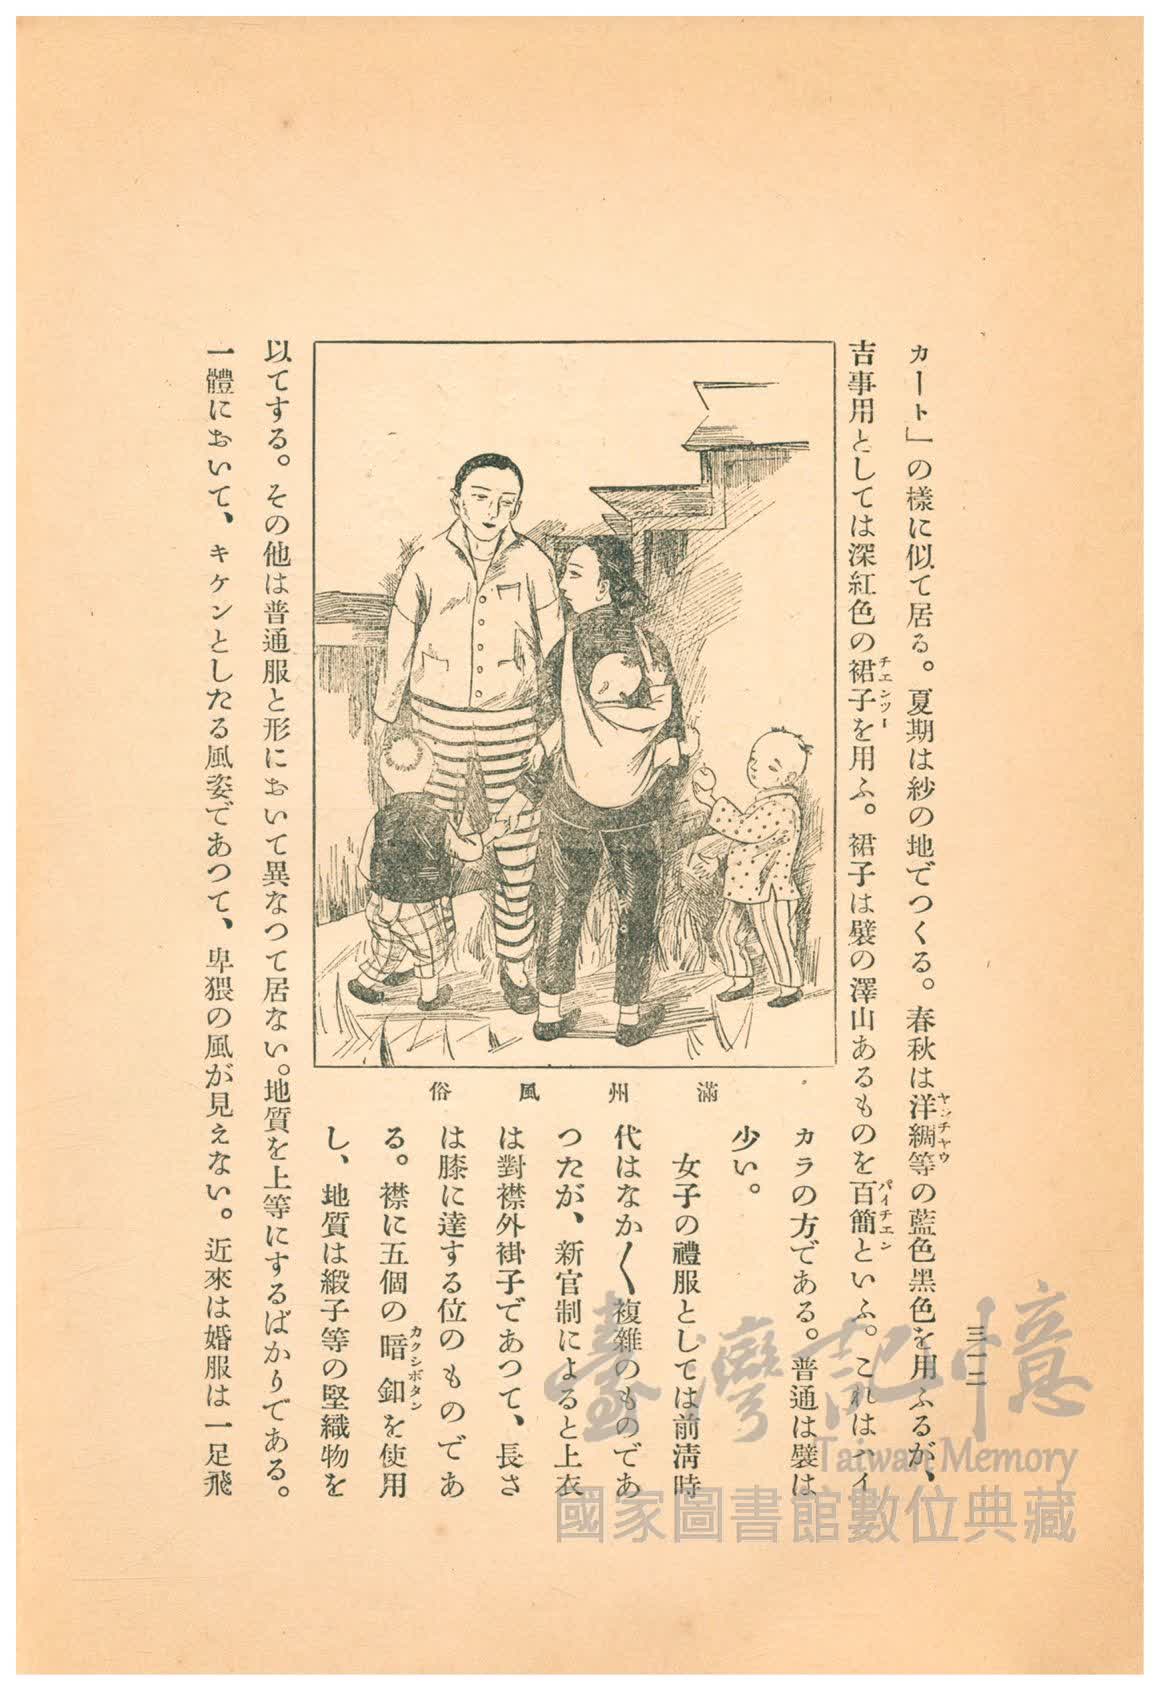 三一二
カート」の樣に似て居る。夏期は紗の地でつくる。春秋は洋綢等の藍色黑色を用ふるが、
ヤンチヤウ
吉事用としては深紅色の裙子を用ふ。裙子は襞の澤山あるものを百簡といふ。これはハイ
チエンツー
パイチエン
カラの方である。普通は襞は
少い。
女子の禮服としては前淸時
代はなか〱複雜のものであ
つたが、新官制によると上衣
は對襟外褂子であつて、長さ
は膝に達する位のものであ
る。襟に五個の暗釦を使用
カクシボタン
し、地質は緞子等の堅織物を
滿州風俗
以てする。その他は普通服と形において異なつて居ない。地質を上等にするばかりである。
一體において、キケンとしたる風姿であつて、卑猥の風が見えない。近來は婚服は一足飛
臺灣記憶
Taiwan Memory
國家圖書館數位典藏